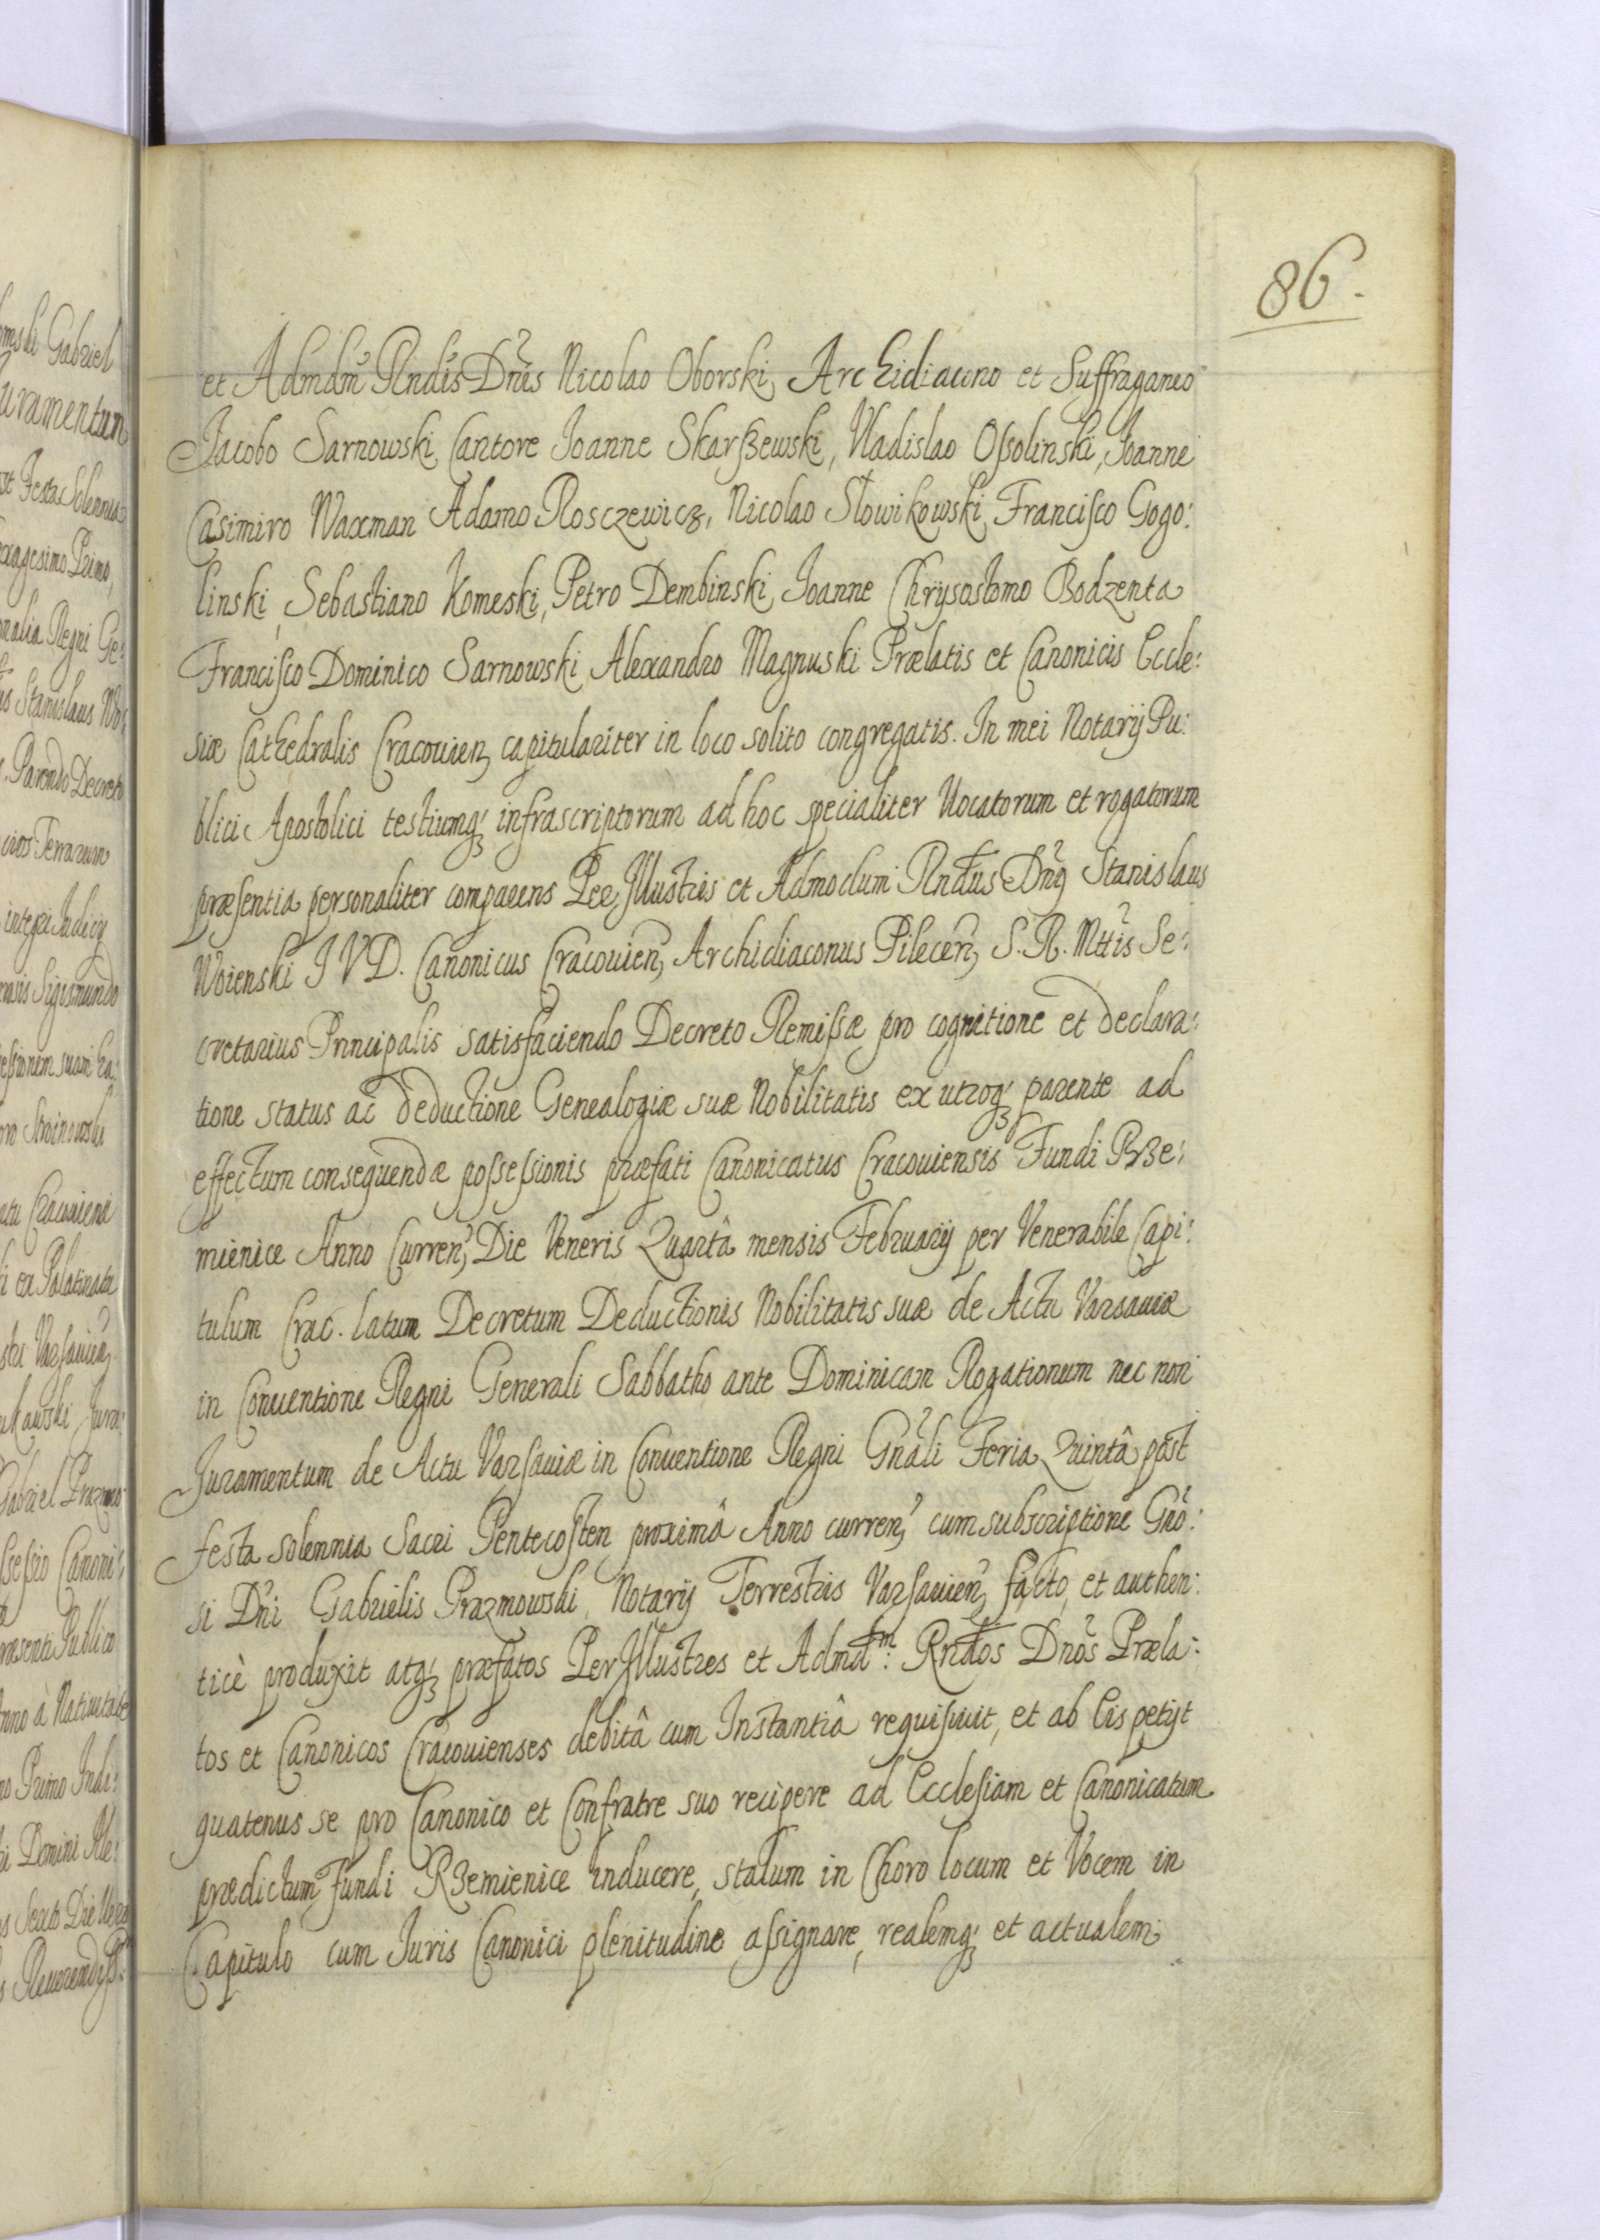 86.
et Admdm̃ Rndis Dnis Nicolao Oborski, Archidiacono et Suffraganeo
Jacobo Sarnowski Cantore Joanne Skarszewski, Vladislao Ossolinski, Joanne
Casimiro Waxman Adamo Rosczewicz, Nicolao Słowikowski, Francisco Gogo:
linski, Sebastiano Komeski, Petro Dembinski, Joanne Chrÿsostomo Bodzenta
Francisco Dominico Sarnowski Alexandro Magnuski Prælatis et Canonicis Eccle:
siæ Cathedralis Cracouien, capitulariter in loco solito congregatis. In mei Notarÿ Pu:
blici Apostolici testiumq; infrascriptorum ad hoc specialiter Vocatorum et rogatorum
præsentia personaliter comparens Per Illustris et Admodum Rndus Dnq Stanislaus
Woienski J V D. Canonicus Cracouien, Archidiaconus Pilecen, S. R. Mttis Se:
cretarius Principalis satisfaciendo Decreto Remissæ pro cognitione et declara:
tione status ac deductione Genealogiæ suæ Nobilitatis ex utroq; parente ad
effectum consequendæ possessionis præfati Canonicatus Cracouiensis Fundi Rze:
mienice Anno Curren, Die Veneris Quartâ mensis Februarÿ per Venerabile Capi:
tulum Crac. latum Decretum Deductionis Nobilitatis suæ de Actu Varsauiæ
in Conuentione Regni Generali Sabbatho ante Dominicam Rogationum nec non
Juramentum de Actu Varsauiæ in Conuentione Regni Gnali Feria Quintâ post
festa solennia Sacri Pentecosten proximâ Anno curren, cum subscriptione Gno:
si Dni Gabrielis Prazmowski, Notarÿ Terrestris Varsauien, facto, et authen:
ticè produxit atq; præfatos Per Illustres et Admd̃m: Rndos Dnos Præla:
tos et Canonicos Cracouienses debitâ cum Instantiâ requisiuit, et ab Eis petÿt
quatenus se pro Canonico et Confratre suo recipere ad Ecclesiam et Canonicatum
prædictum Fundi Rzemienice inducere, stalum in Choro locum et Vocem in
Capitulo cum Juris Canonici plenitudine assignare, realemq; et actualem